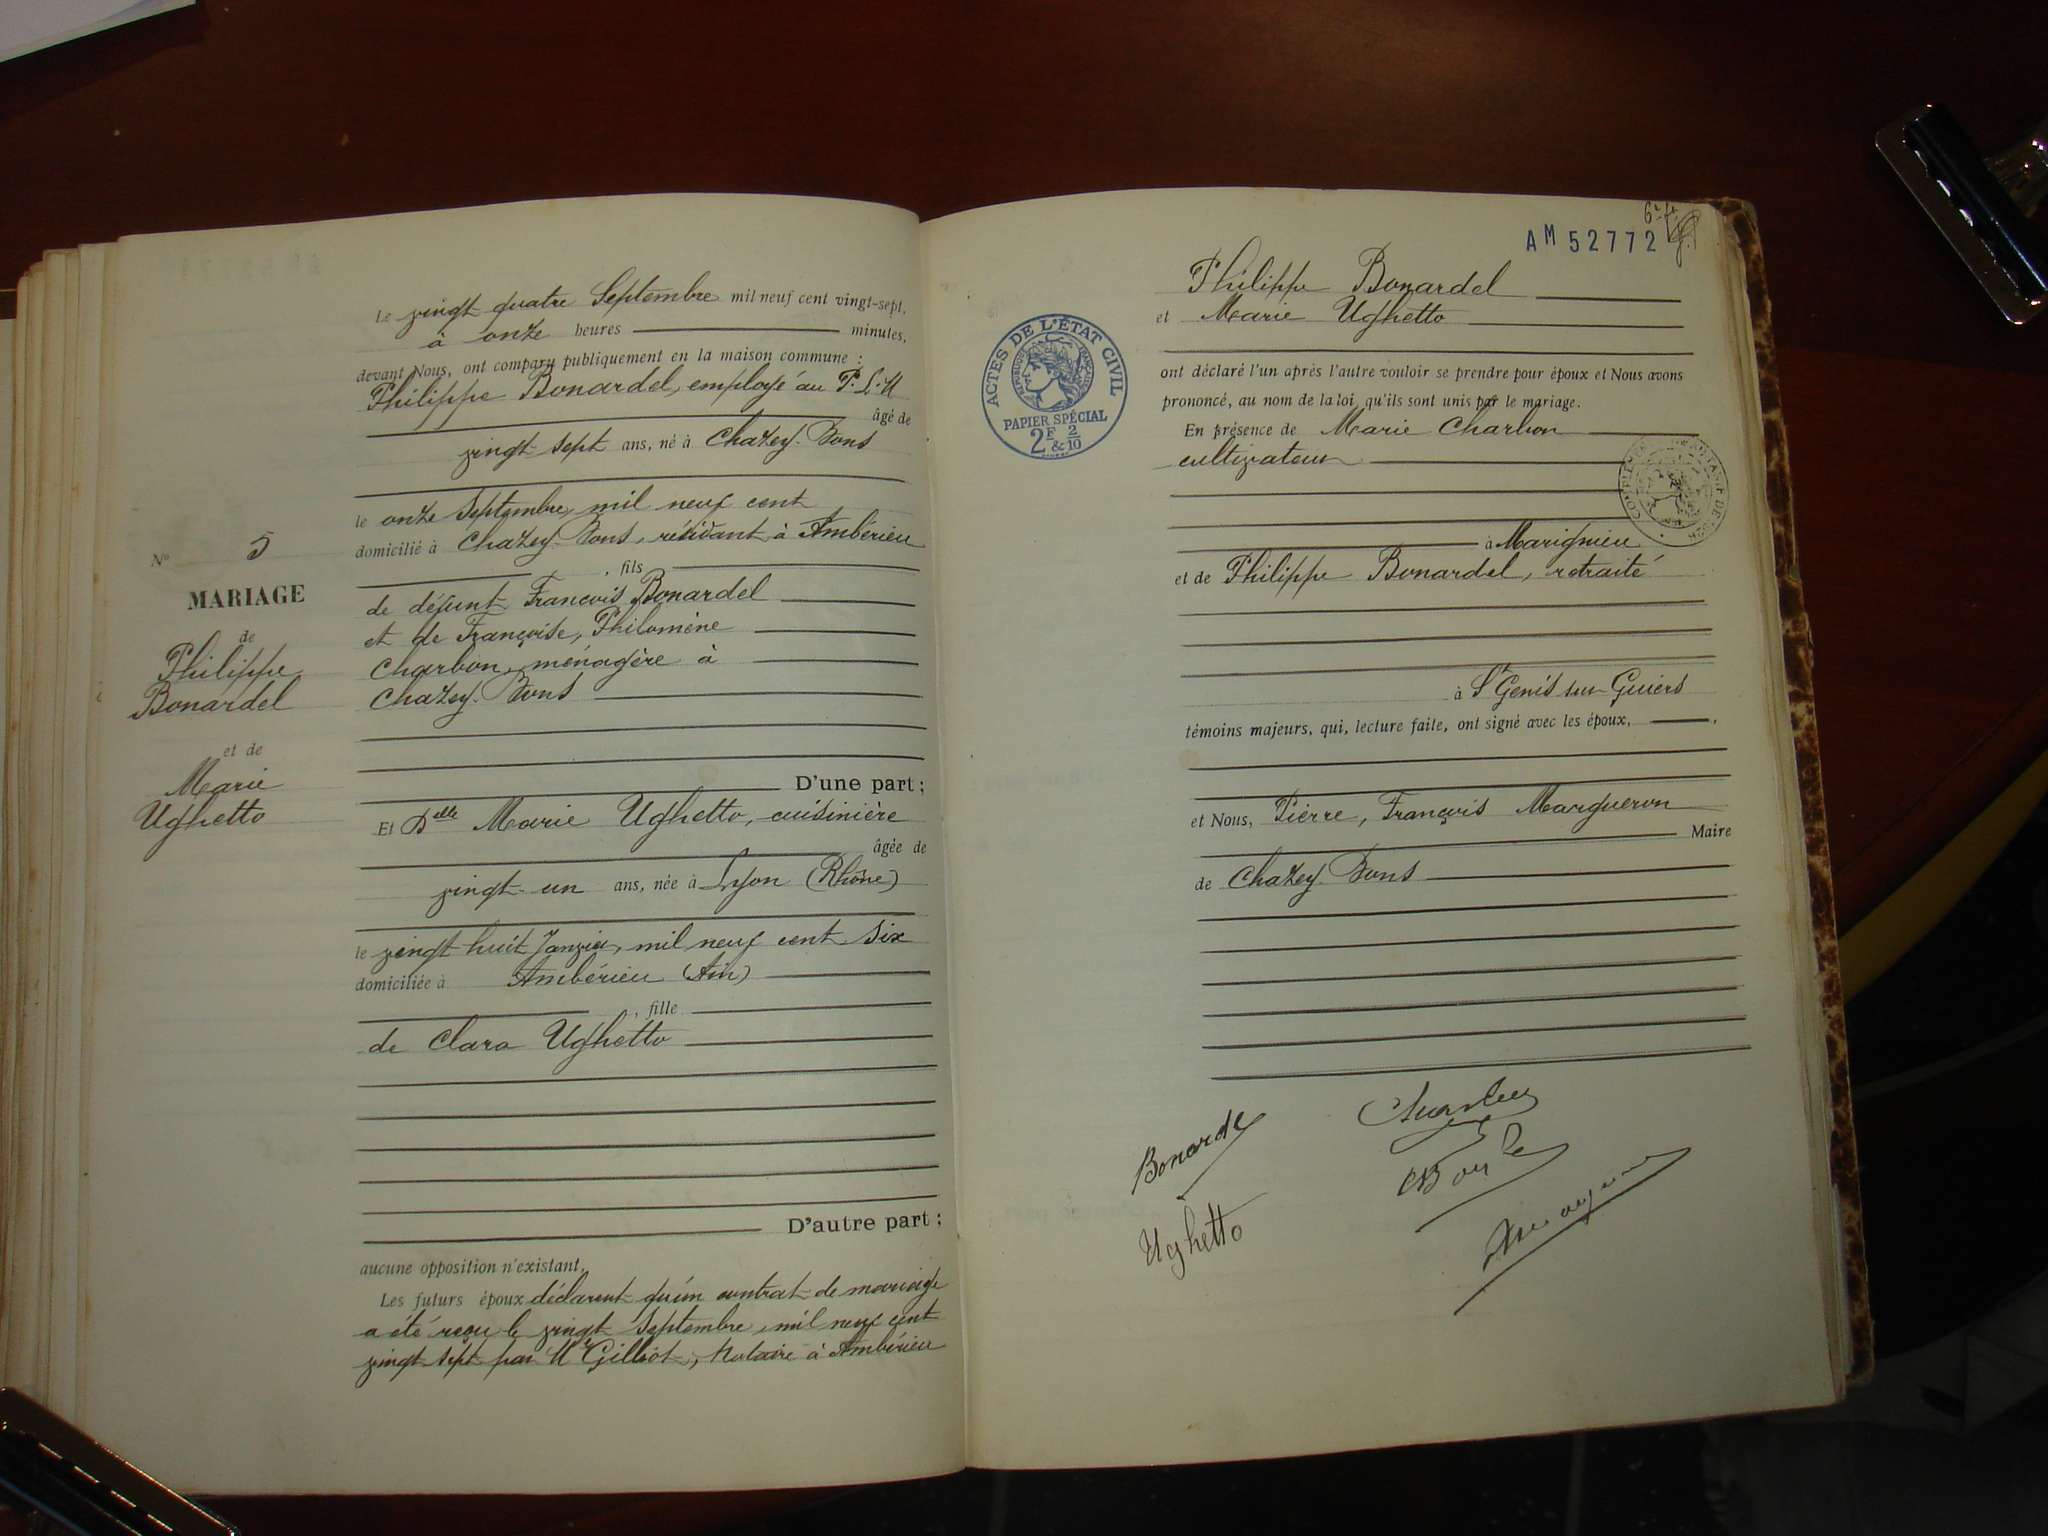 Le vingt quatre Septembre mil neuf cent vingt-sept,
à onze heures minutes,
devant Nous, ont comparu publiquement en la maison commune :
Philippe Bonardel, employé au P. L. M
âgé de
vingt sept ans, né à Chazey-Bons
le onze Septembre, mil neuf cent
domicilié à Chazey-Bons, résidant à Ambérieu
, fils
de défunt François Bonardel
et de Françoise, Philomène
Charbon, ménagère à
Chazey-Bons
D'une part ;
Et Delle Marie Ughetto, cuisinière
âgée de
vingt-un ans, née à Lyon (Rhône)
le vingt huit Janvier, mil neuf cent six
domiciliée à Ambérieu (Ain)
, fille
de Clara Ughetto
D'autre part ;
aucune opposition n'existant.
Les futurs époux déclarent qu'un contrat de mariage
a été reçu le vingt Septembre, mil neuf cent
vingt sept par Me Gilliot, Notaire à Ambérieu
No 5
MARIAGE
de
Philippe
Bonardel
et de
Marie
Ughetto
AM 52772
ACTES DE L'ÉTAT CIVIL
RÉPUBLIQUE FRANÇAISE
PAPIER SPÉCIAL
2F & 2/10
Philippe Bonardel
et Marie Ughetto
ont déclaré l'un après l'autre vouloir se prendre pour époux et Nous avons
prononcé, au nom de la loi, qu'ils sont unis par le mariage.
En présence de Marie Charbon
cultivateur
à Marignieu
et de Philippe Bonardel, retraité
à St Genis sur Guiers
témoins majeurs, qui, lecture faite, ont signé avec les époux,
et Nous, Pierre, François Margueron
Maire
de Chazey-Bons
Bonardel
Ughetto